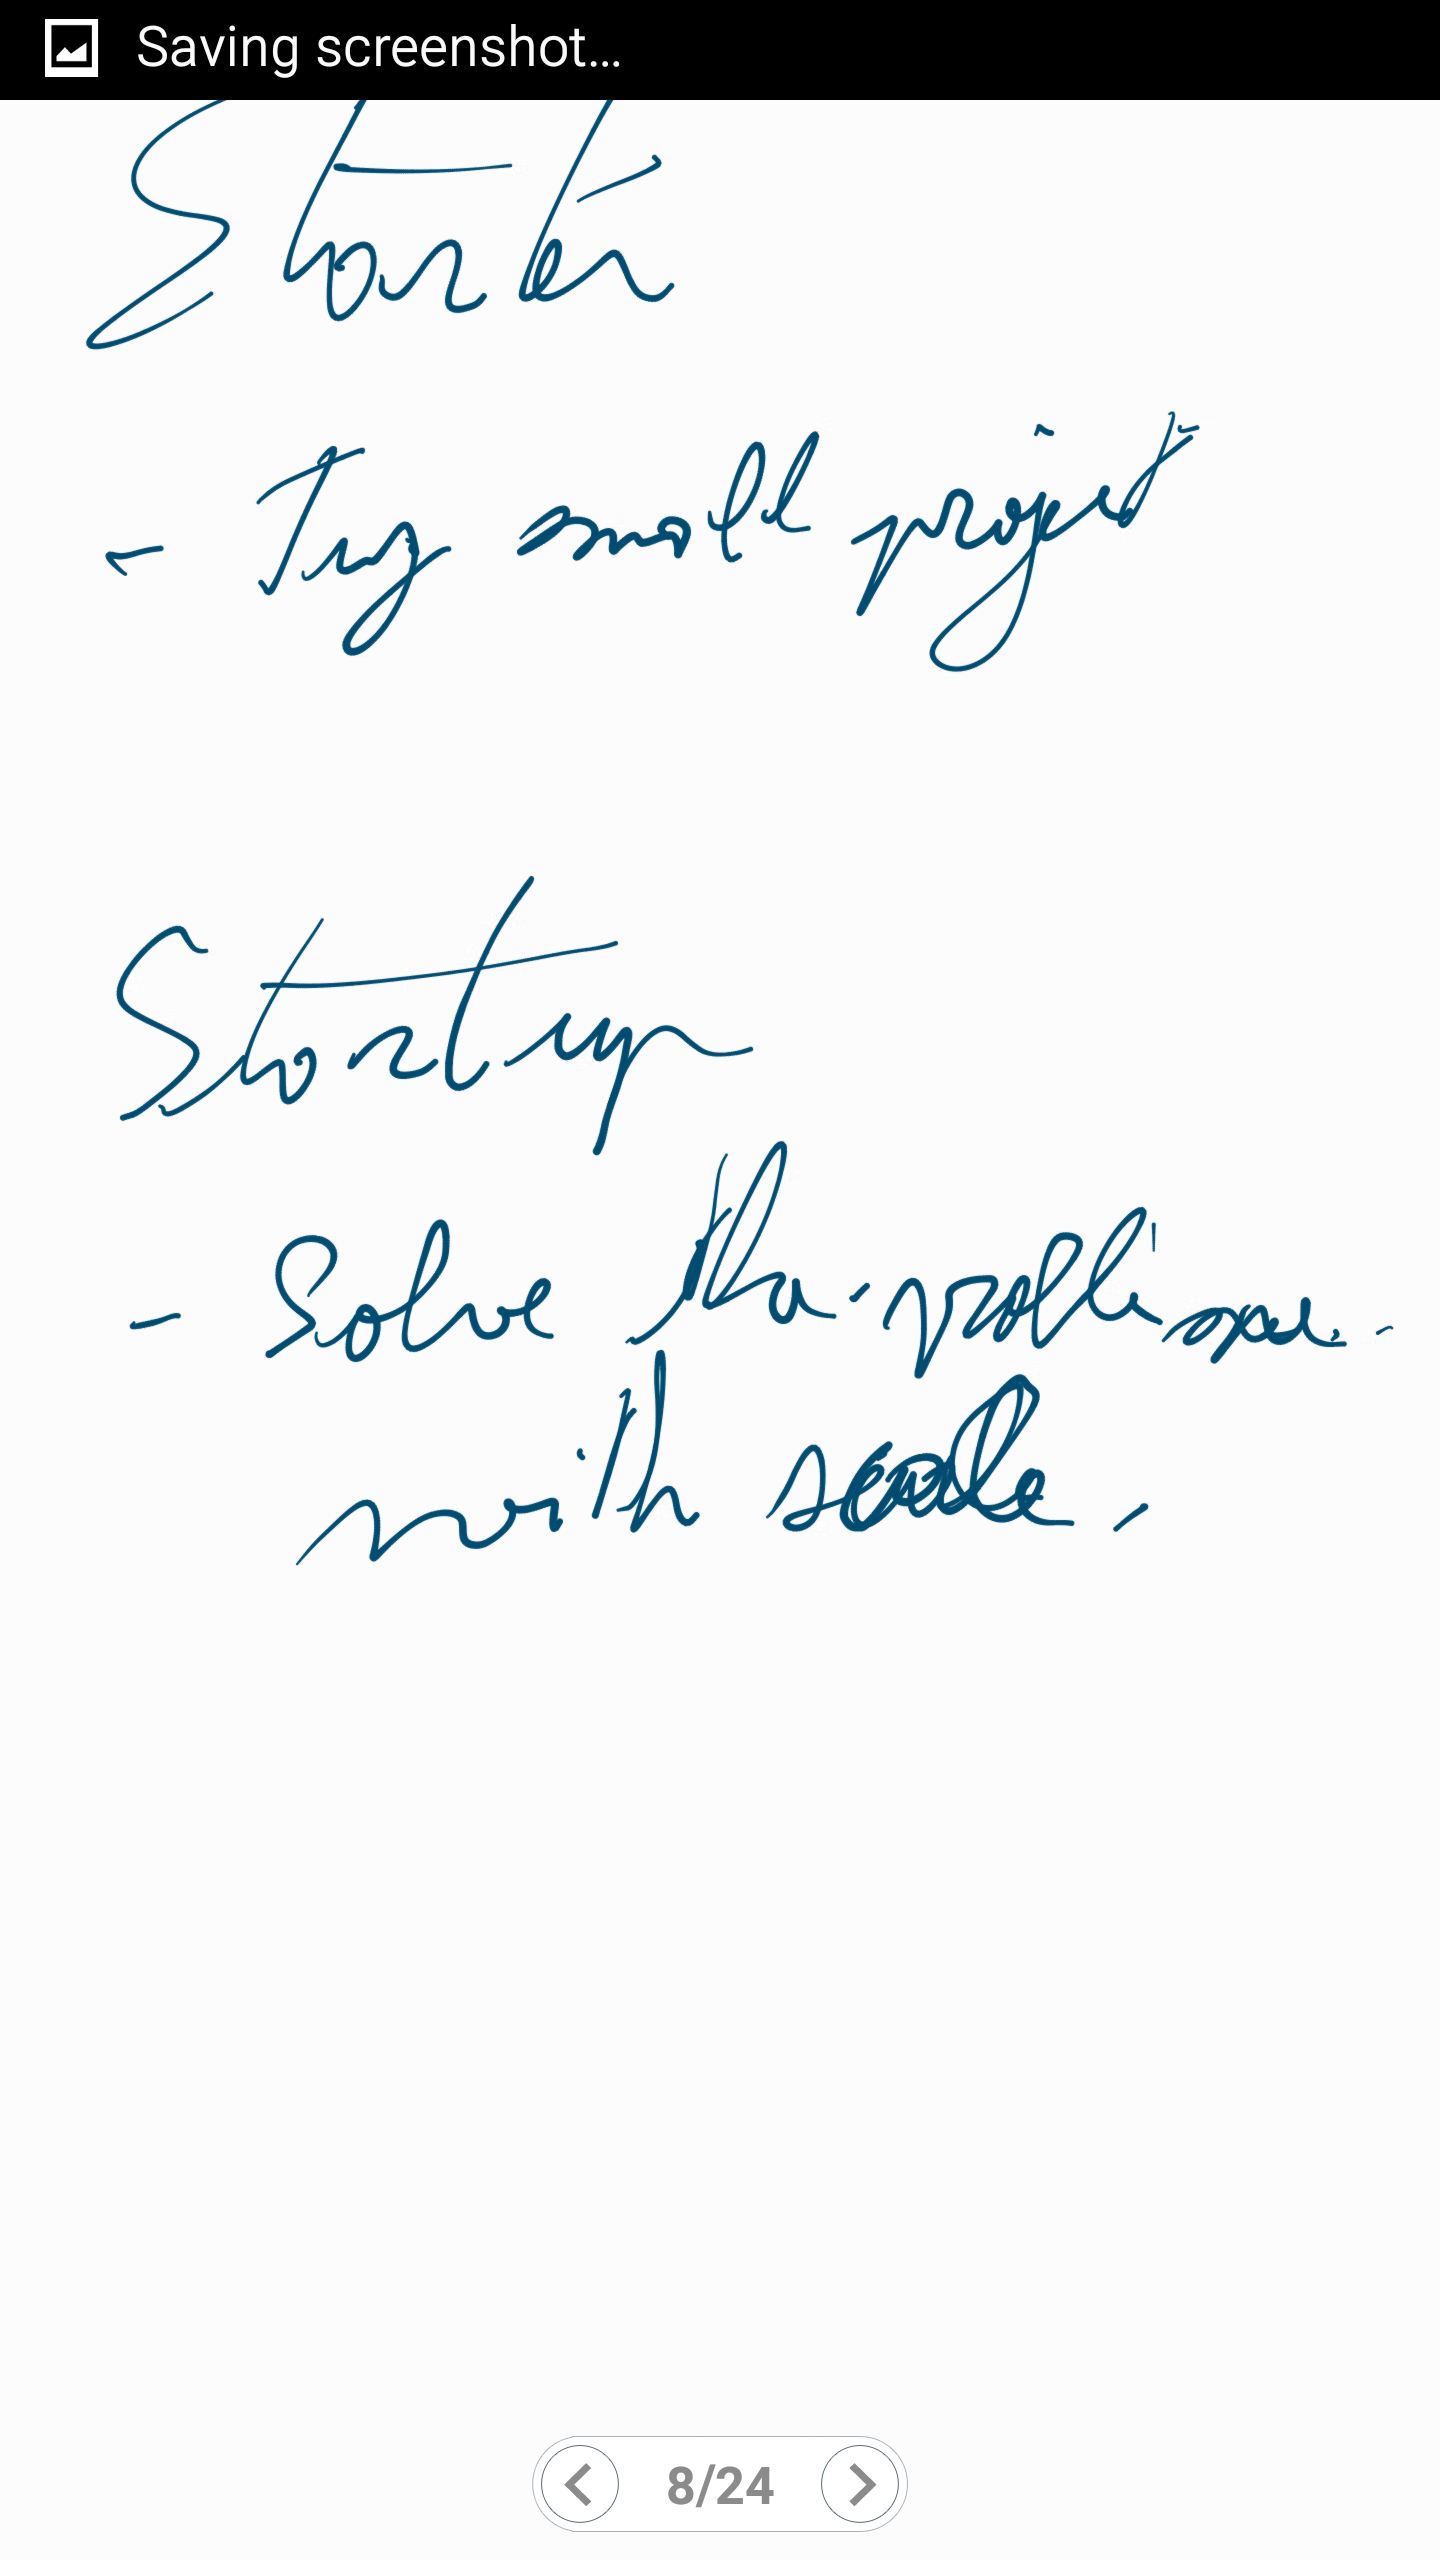 Saving screenshot...
Starter
- Try small project
Startup
- Solve the
with scale.
8/24